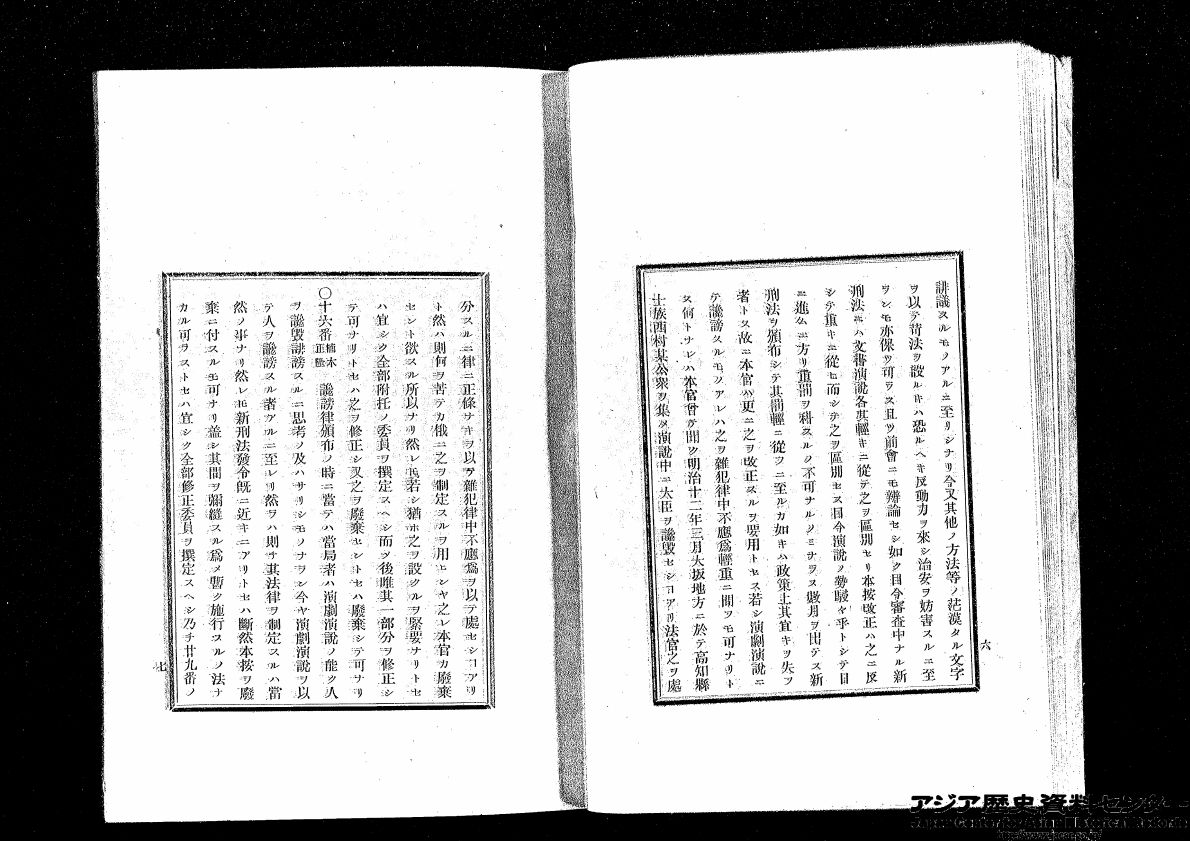 誹議スルモノアルニ至リシナリ今又其他ノ方法等ノ茫漠タル文字
ヲ以テ苛法ヲ設ルキハ恐ルヘキ反動力ヲ來シ治安ヲ妨害スルニ至
ランモ亦保ツ可ラス且ツ前會ニモ辨論セシ如ク目今審査中ナル新
刑法ニハ文書演説各其輕キニ從テ之ヲ區別セリ本按改正ハ之ニ反
シテ重キニ從ヒ而シテ之ヲ區別セス目今演説ノ勢駸々乎トシテ日
ニ進ムニ方リ重罰ヲ科スルノ不可ナルノミナラス數月ヲ出テス新
刑法ヲ頒布シテ其罰輕ニ從フニ至ルカ如キハ政策上其宜キヲ失フ
者トス故ニ本官ハ更ニ之ヲ改正スルヲ要用トセス若シ演劇演説ニ
テ讒謗スルモノアレハ之ヲ雜犯律中不應爲輕重ニ問フモ可ナリト
ス何トナレハ本官曾テ聞ク明治十二年三月大坂地方ニ於テ高知縣
士族西村某公衆ヲ集メ演説中ニ大臣ヲ讒毀セシコアリ法官之ヲ處
六
分スルニ律ニ正條ナキヲ以テ雜犯律中不應爲ヲ以テ處セシコアリ
ト然ハ則何ヲ苦テカ俄ニ之ヲ制定スルヲ用ヒンヤ之レ本官カ廢棄
セント欲スル所以ナリ然レ𪜈若シ猶ホ之ヲ設クルヲ緊要ナリトセ
ハ宜シク全部附托ノ委員ヲ撰定スヘシ而ノ後唯其一部分ヲ修正シ
テ可ナリトセハ之ヲ修正シ又之ヲ廢棄セントセハ廢棄シテ可ナリ
〇十六番 楠本正隆 讒謗律頒布ノ時ニ當テハ當局者ハ演劇演説ノ能ク人
ヲ讒毀誹謗スルニ思考ノ及ハサリシモノナラン今ヤ演劇演説ヲ以
テ人ヲ讒謗スル者アルニ至レリ然ラハ則サ其法律ヲ制定スルハ當
然ノ事ナリ然レ𪜈新刑法發令既ニ近キニアリトセハ斷然本按ヲ廢
棄ニ付スルモ可ナリ蓋シ其間ヲ彌縫スル爲メ暫ク施行スルノ法ナ
カル可ラストセハ宜シク全部修正委員ヲ撰定スヘシ乃チ廿九番ノ
七
アジア歴史資料センター
Japan Center for Asian Historical Records
http://www.jacar.go.jp